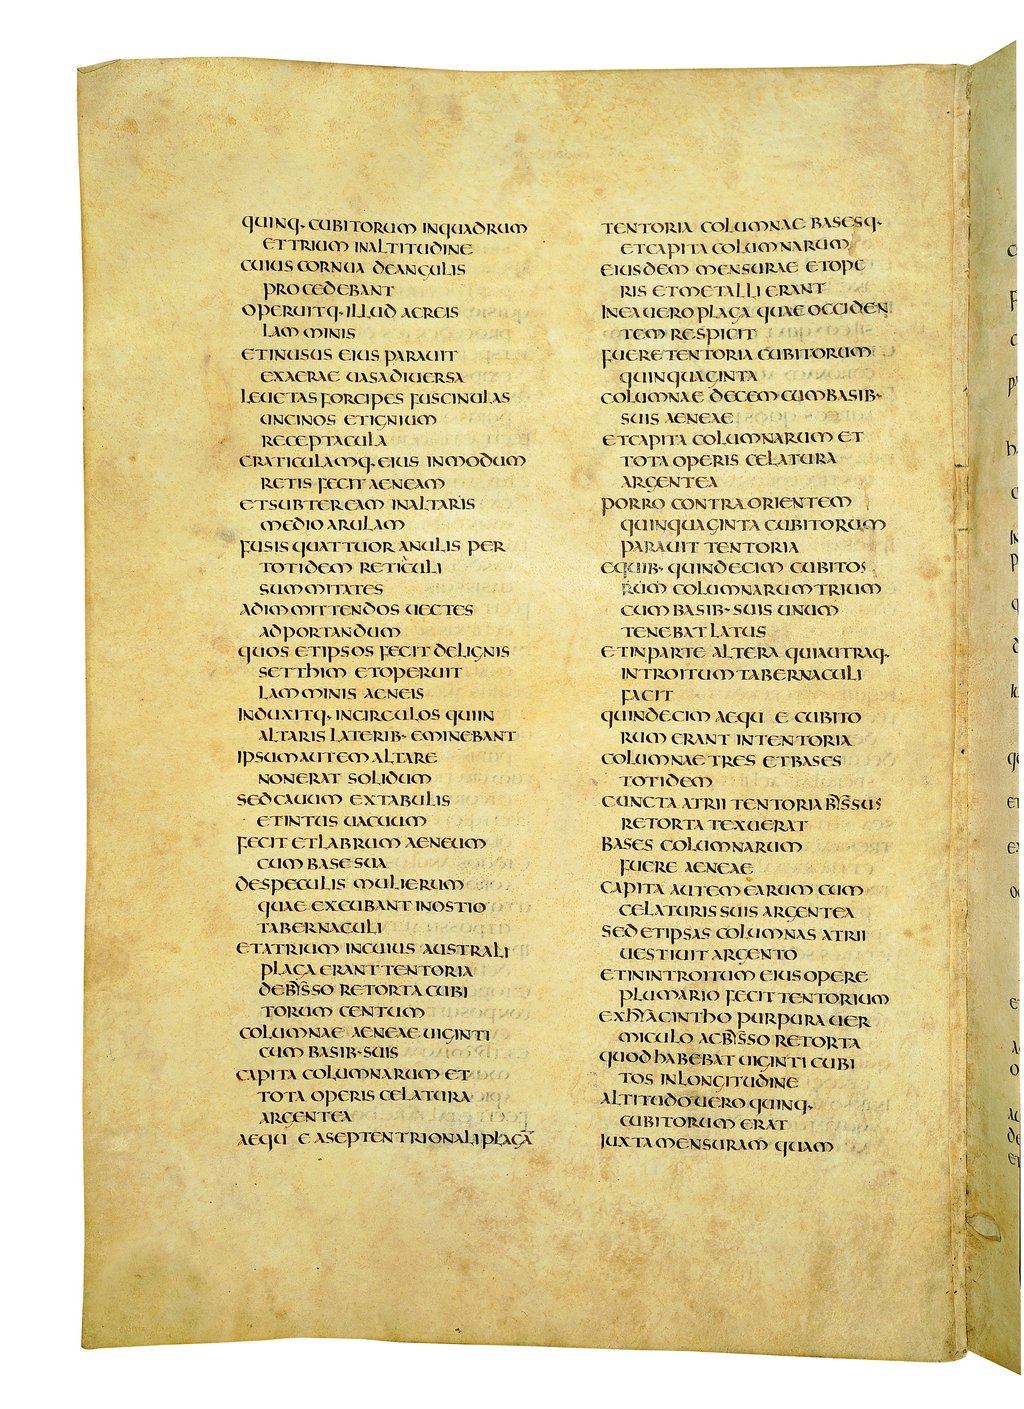 QUINQ· CUBITORUM INQUADRUM
ETTRIUM INALTITUDINE
CUIUS CORNUA DEANGULIS
PROCEDEBANT
OPERUITQ· ILLUD AEREIS
LAMMINIS
ETINUSUS EIUS PARAUIT
EXAERAE UASADIUERSA
LEUETAS FORCIPES FUSCINULAS
UNCINOS ETIGNIUM
RECEPTACULA
CRATICULAMQ· EIUS INMODUM
RETIS FECIT AENEAM
ETSUBTEREAM INALTARIS
MEDIO ARULAM
FUSIS QUATTUOR ANULIS PER
TOTIDEM RETICULI
SUMMITATES
ADIMMITTENDOS UECTES
ADPORTANDUM
QUOS ETIPSOS FECIT DELIGNIS
SETTHIM ETOPERUIT
LAMMINIS AENEIS
INDUXITQ· INCIRCULOS QUIIN
ALTARIS LATERIB· EMINEBANT
IPSUMAUTEM ALTARE
NONERAT SOLIDUM
SEDCAUUM EXTABULIS
ETINTUS UACUUM
FECIT ETLABRUM AENEUM
CUM BASE SUA
DESPECULIS MULIERUM
QUAE EXCUBANT INOSTIO
TABERNACULI
ETATRIUM INCUIUS AUSTRALI
PLAGA ERANT TENTORIA
DEBYSSO RETORTA CUBI
TORUM CENTUM
COLUMNAE AENEAE UIGINTI
CUM BASIB· SUIS
CAPITA COLUMNARUM ET
TOTA OPERIS CELATURA
ARGENTEA
AEQU E ASEPTENTRIONALI PLAGA
TENTORIA COLUMNAE BASESQ·
ETCAPITA COLUMNARUM
EIUSDEM MENSURAE ETOPE
RIS ETMETALLI ERANT
INEAUERO PLAGA QUAE OCCIDEN
TEM RESPICIT
FUERE TENTORIA CUBITORUM
QUINQUAGINTA
COLUMNAE DECEM CUMBASIB·
SUIS AENEAE
ETCAPITA COLUMNARUM ET
TOTA OPERIS CELATURA
ARGENTEA
PORRO CONTRAORIENTEM
QUINQUAGINTA CUBITORUM
PARAUIT TENTORIA
EQUIB· QUINDECIM CUBITOS
RUM COLUMNARUM TRIUM
CUM BASIB· SUIS UNUM
TENEBAT LATUS
ETINPARTE ALTERA QUIAUTRAQ·
INTROITUM TABERNACULI
FACIT
QUINDECIM AEQU E CUBITO
RUM ERANT INTENTORIA
COLUMNAE TRES ETBASES
TOTIDEM
CUNCTA ATRII TENTORIA BYSSUS
RETORTA TEXUERAT
BASES COLUMNARUM
FUERE AENEAE
CAPITA AUTEM EARUM CUM
CELATURIS SUIS ARGENTEA
SED ETIPSAS COLUMNAS ATRII
UESTIUIT ARGENTO
ETININTROITUM EIUS OPERE
PLUMARIO FECIT TENTORIUM
EXHYACINTHO PURPURA UER
MICULO ACBYSSO RETORTA
QUOD HABEBAT UIGINTI CUBI
TOS INLONGITUDINE
ALTITUDO UERO QUINQ·
CUBITORUM ERAT
IUXTA MENSURAM QUAM